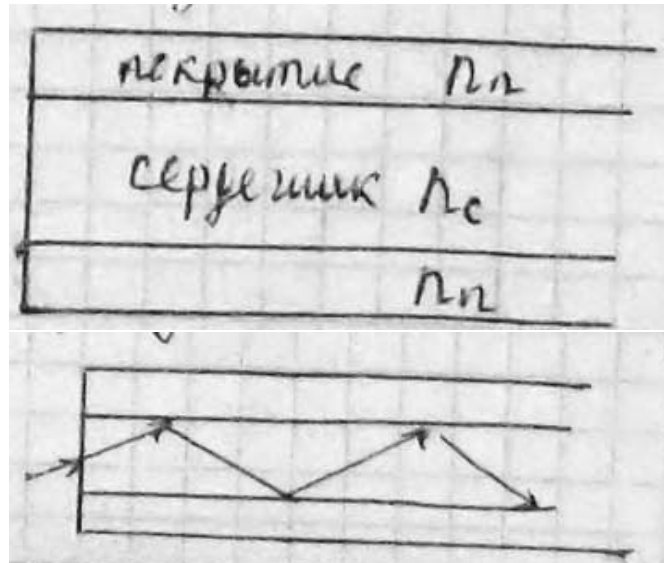 покрытие nп
сердечник nс
nп